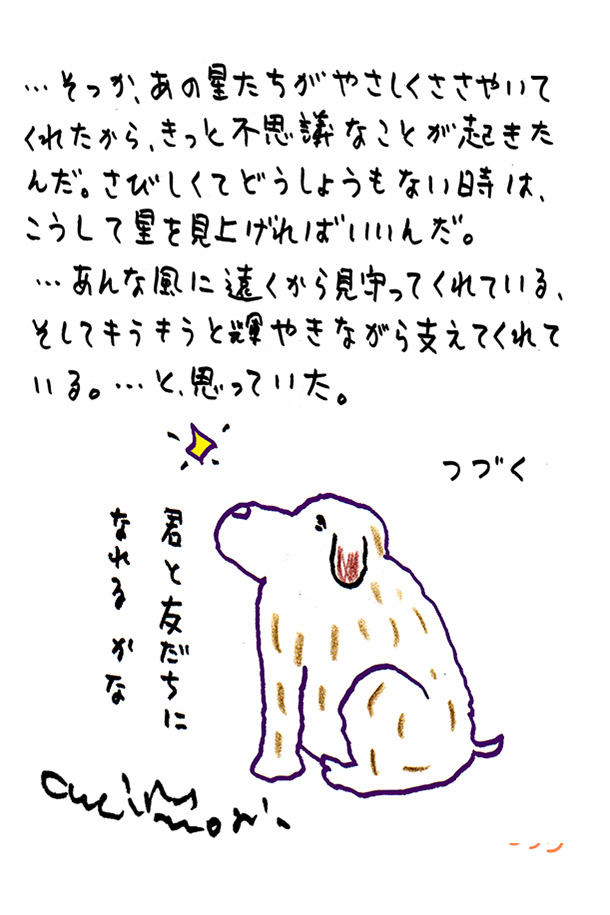 …そっか、あの星たちがやさしくささやいて
くれたから、きっと不思議なことが起きた
んだ。さびしくてどうしようもない時は、
こうして星を見上げればいいんだ。
…あんな風に遠くから見守ってくれている、
そしてキラキラと輝やきながら支えてくれて
いる。…と、思っていた。
つづく
君と友だちに
なれるかな